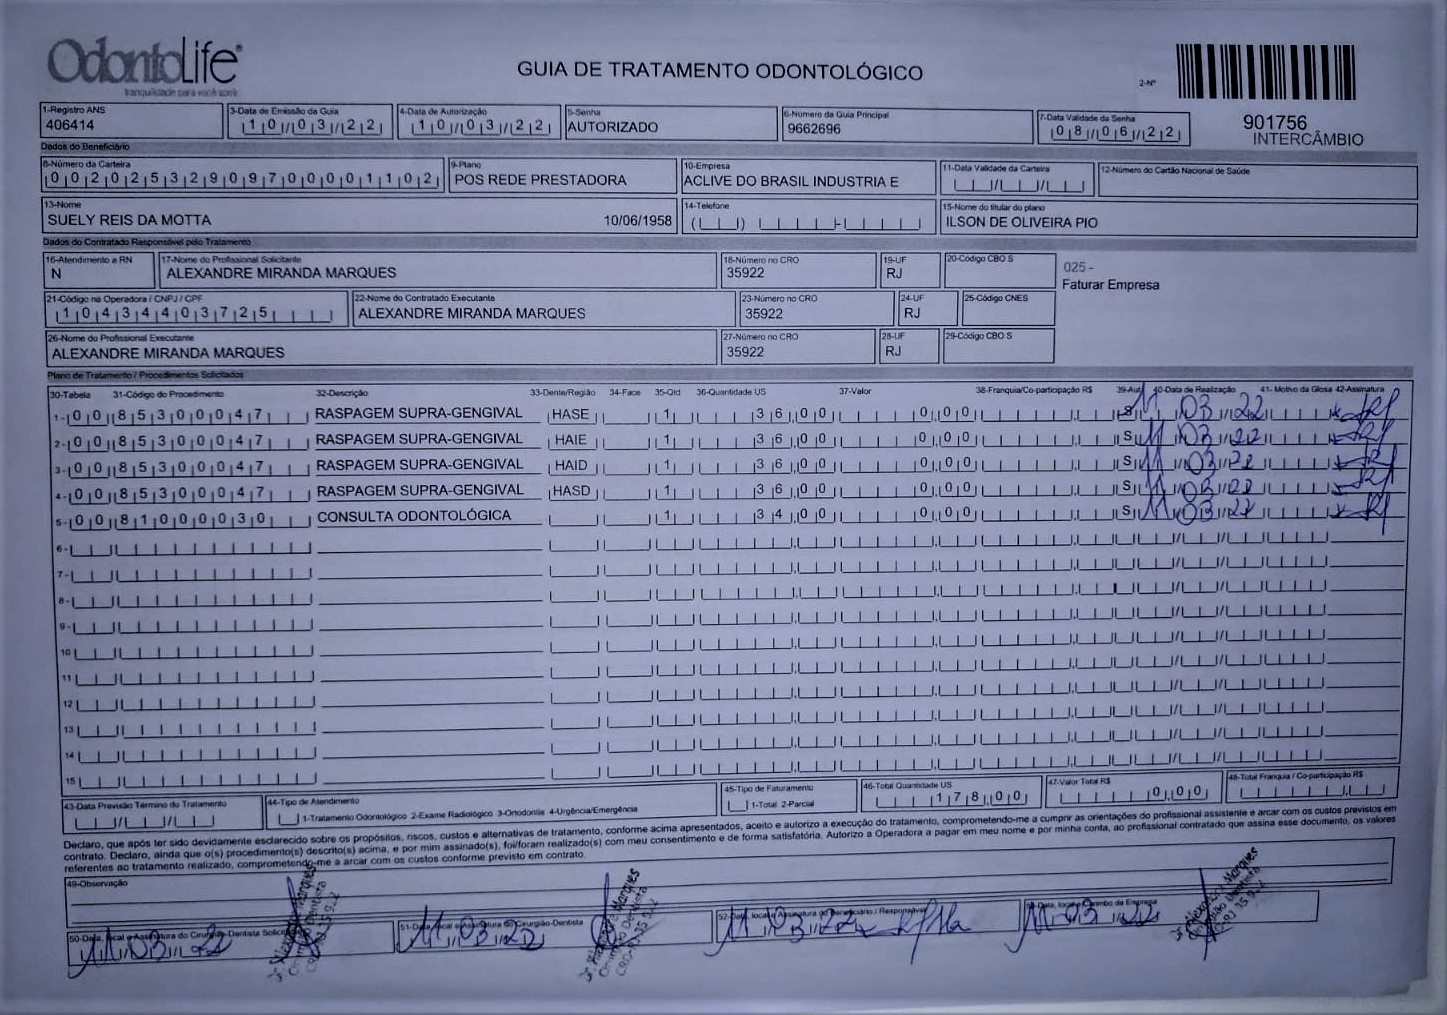 OdontoLife
tranquilidade para você sorrir
GUIA DE TRATAMENTO ODONTOLÓGICO
2-Nº
901756
INTERCÂMBIO
1-Registro ANS
406414
3-Data de Emissão da Guia
10/03/22
4-Data de Autorização
10/03/22
5-Senha
AUTORIZADO
6-Número da Guia Principal
9662696
7-Data Validade da Senha
08/06/22
Dados do Beneficiário
8-Número da Carteira
00202532909700001102
9-Plano
POS REDE PRESTADORA
10-Empresa
ACLIVE DO BRASIL INDUSTRIA E
11-Data Validade da Carteira
12-Número do Cartão Nacional de Saúde
13-Nome
SUELY REIS DA MOTTA 10/06/1958
14-Telefone
15-Nome do titular do plano
ILSON DE OLIVEIRA PIO
Dados do Contratado Responsável pelo Tratamento
16-Atendimento a RN
N
17-Nome do Profissional Solicitante
ALEXANDRE MIRANDA MARQUES
18-Número no CRO
35922
19-UF
RJ
20-Código CBO S
025 -
Faturar Empresa
21-Código na Operadora / CNPJ / CPF
10434403725
22-Nome do Contratado Executante
ALEXANDRE MIRANDA MARQUES
23-Número no CRO
35922
24-UF
RJ
25-Código CNES
26-Nome do Profissional Executante
ALEXANDRE MIRANDA MARQUES
27-Número no CRO
35922
28-UF
RJ
29-Código CBO S
Plano de Tratamento / Procedimentos Solicitados
30-Tabela 31-Código do Procedimento 32-Descrição 33-Dente/Região 34-Face 35-Qtd 36-Quantidade US 37-Valor 38-Franquia/Co-participação R$ 39-Aut 40-Data de Realização 41- Motivo da Glosa 42-Assinatura
1- 00 85300047 RASPAGEM SUPRA-GENGIVAL HASE 1 36,00 0,00 S 11/03/22
2- 00 85300047 RASPAGEM SUPRA-GENGIVAL HAIE 1 36,00 0,00 S 11/03/22
3- 00 85300047 RASPAGEM SUPRA-GENGIVAL HAID 1 36,00 0,00 S 11/03/22
4- 00 85300047 RASPAGEM SUPRA-GENGIVAL HASD 1 36,00 0,00 S 11/03/22
5- 00 81000030 CONSULTA ODONTOLÓGICA 1 34,00 0,00 S 11/03/22
6-
7-
8-
9-
10
11
12
13
14
15
43-Data Previsão Término do Tratamento
44-Tipo de Atendimento
1-Tratamento Odontológico 2-Exame Radiológico 3-Ortodontia 4-Urgência/Emergência
45-Tipo de Faturamento
1-Total 2-Parcial
46-Total Quantidade US
178,00
47-Valor Total R$
0,00
48-Total Franquia / Co-participação R$
Declaro, que após ter sido devidamente esclarecido sobre os propósitos, riscos, custos e alternativas de tratamento, conforme acima apresentados, aceito e autorizo a execução do tratamento, comprometendo-me a cumprir as orientações do profissional assistente e arcar com os custos previstos em
contrato. Declaro, ainda que o(s) procedimento(s) descrito(s) acima, e por mim assinado(s), foi/foram realizado(s) com meu consentimento e de forma satisfatória. Autorizo a Operadora a pagar em meu nome e por minha conta, ao profissional contratado que assina esse documento, os valores
referentes ao tratamento realizado, comprometendo-me a arcar com os custos conforme previsto em contrato.
49-Observação
50-Data, local e Assinatura do Cirurgião-Dentista Solicitante
11/03/22
51-Data, local e Assinatura do Cirurgião-Dentista
11/03/22
52-Data, local e Assinatura do Beneficiário / Responsável
11/03/22
Data, local e Carimbo da Empresa
11/03/22
Marques
Cirurgião Dentista